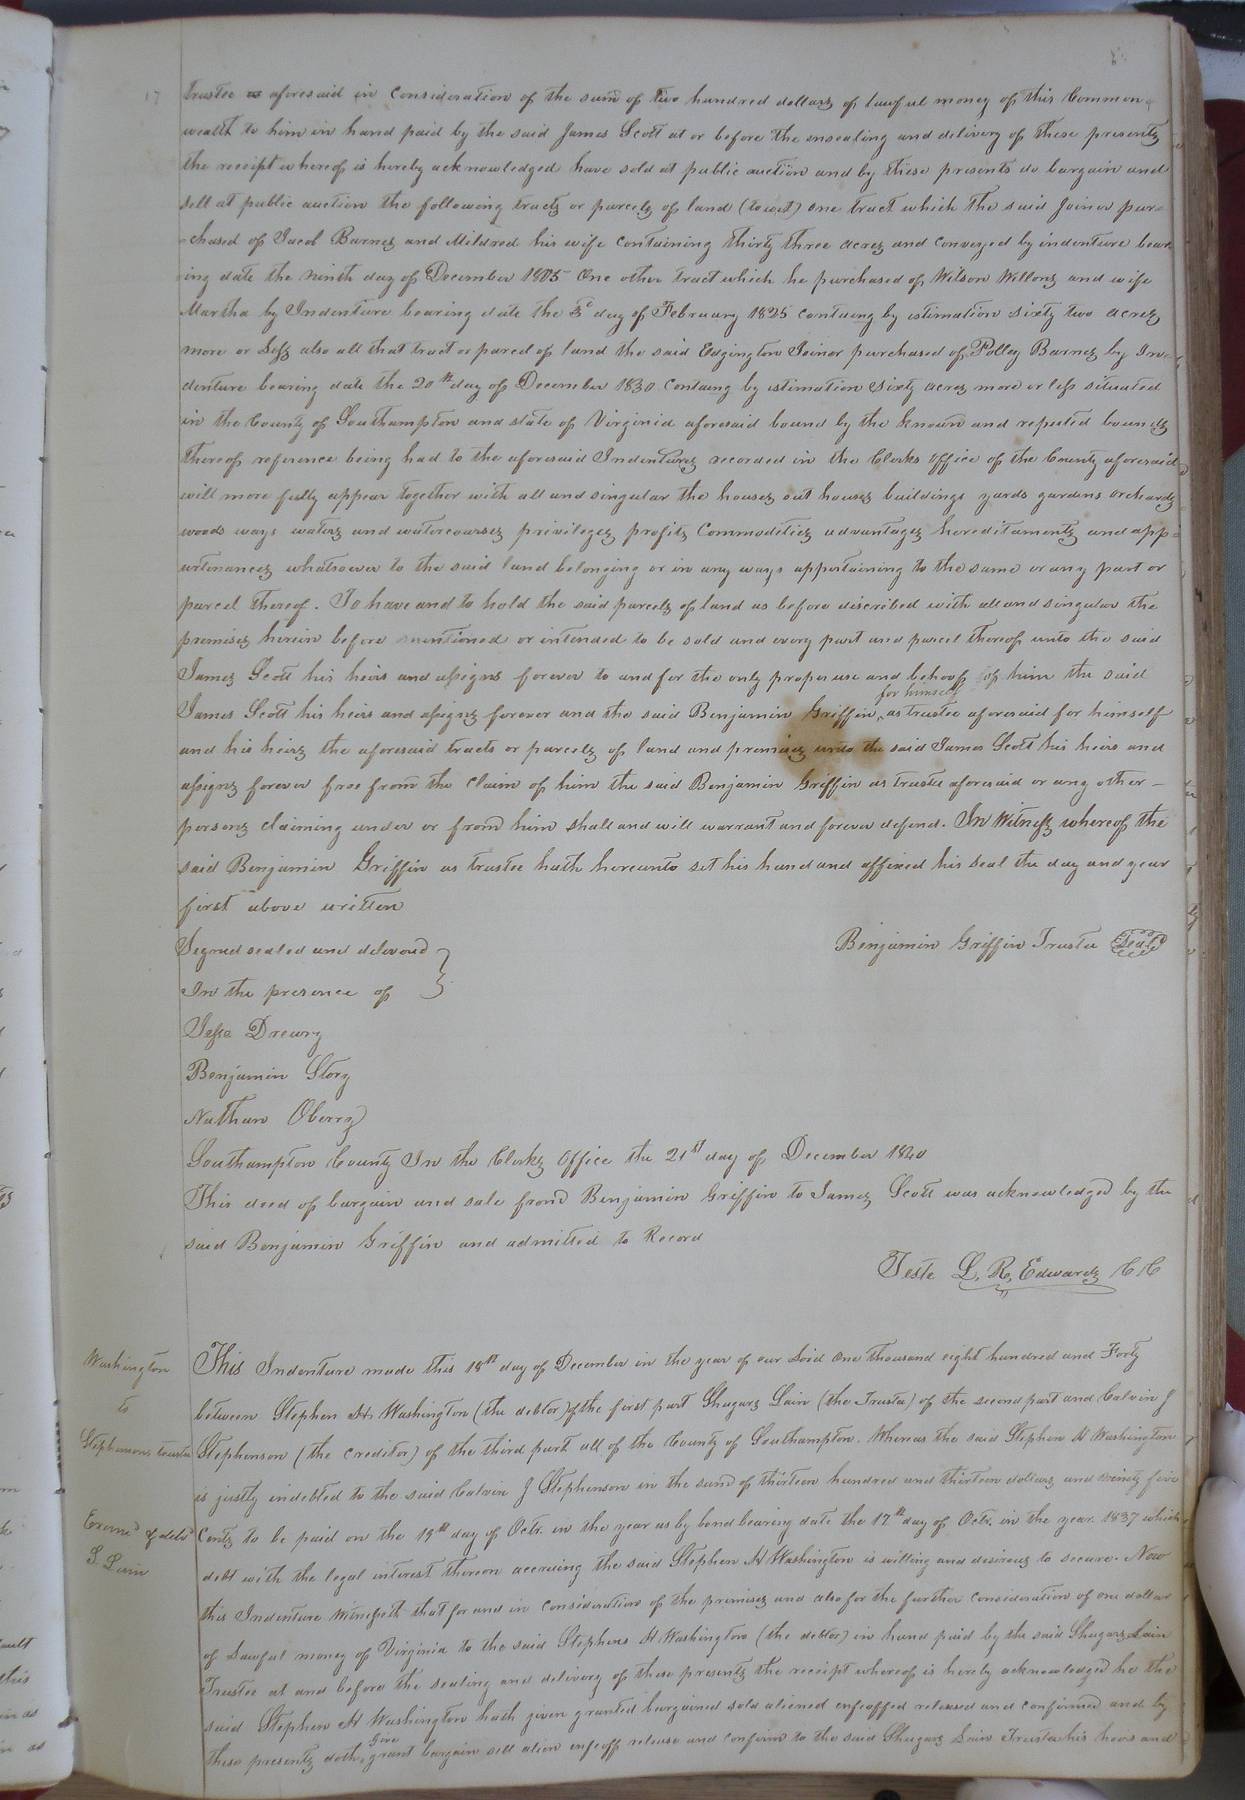 17
trustee as aforesaid in Consideration of the sum of two hundred dollars of lawful money of this Common
wealth to him in hand paid by the said James Scott at or before the ensealing and delivery of these presents
the receipt whereof is hereby acknowledged have sold at public auction and by these presents do bargain and
sell at public auction the following tracts or parcels of land (towit) One tract which the said Joiner pur
chased of Jacob Barnes and Mildred his wife Containing thirty three acres and conveyed by indenture bear
ing date the ninth day of December 1825 One other tract which he purchased of Wilson Willons and wife
Martha by Indenture bearing date the day of February 1825 containg by estimation sixty two acres
more or Less also all that tract or parcel of land the said Edgington Joiner purchased of Polley Barnes by In
denture bearing date the 20th day of December 1830 Containg by estimation Sixty acres more or less situated
in the County of Southampton and state of Virginia aforesaid bound by the known and reputed bounds
thereof reference being had to the aforesaid Indentures recorded in the Clerks office of the County aforesaid
will more fully appear together with all and singular the houses out houses buildings yards gardens orchards
woods ways waters and watercourses privileges profits Commodities advantages hereditaments and app
urtenances whatsoever to the said land belonging or in any ways appertaining to the same or any part or
parcel thereof. To have and to hold the said parcels of land as before discribed with all and singular the
premises herein before mentioned or intended to be sold and every part and parcel thereof unto the said
James Scott his heirs and assigns forever to and for the only proper use and behoof of him the said
for himself
James Scott his heirs and assigns forever and the said Benjamin Griffin as trustee aforesaid for himself
and his heirs the aforesaid tracts or parcels of land and premises unto the said James Scott his heirs and
assigns forever free from the claim of him the said Benjamin Griffin as trustee aforesaid or any other
persons claiming under or from him shall and will warrant and forever defend. In Witness whereof the
said Benjamin Griffin as trustee hath hereunto set his hand and affixed his seal the day and year
first above written
Segned sealed and deliverd }
Benjamin Griffin Trustee Seal
In the presence of
Jesse Drewry
Benjamin Story
Nathan Oberry
Southampton County In the Clerks Office the 21st day of December 1840
This deed of bargain and sale from Benjamin Griffin to James Scott was acknowledged by the
said Benjamin Griffin and admitted to Record
Teste L. R. Edwards CC
Washington
to
Stephensons trustee
S. Lain
This Indenture made this 18th day of December in the year of our Lord One thousand eight hundred and Forty
between Stephen H. Washington (the debtor) of the first part Shugars Lain (the Trustee) of the second part and Calvin J
Stephenson (the Creditor) of the third part all of the County of Southampton. Whereas the said Stephen H Washington
is justly indebted to the said Calvin J Stephenson in the sum of thirteen hundred and thirteen dollars and ninety five
Cents to be paid on the 19th day of Octr. in the year as by bond bearing date the 17th day of Octr. in the year 1837 which
debt with the legal interest thereon accruing the said Stephen H Washington is willing and desirous to secure. Now
this Indenture Witnesseth that for and in Consideration of the premises and also for the further Consideration of one dollar
of Lawful money of Virginia to the said Stephen H Washington (the debtor) in hand paid by the said Shugars Lain
Trustee at and before the sealing and delivery of these presents the receipt whereof is hereby acknowledged he the
said Stephen H Washington hath given granted bargained sold aliened enfeoffed released and confirmed and by
Give
these presents doth grant bargain sell alien enfeoff release and confirm to the said Shugars Lain Trustee his heirs and